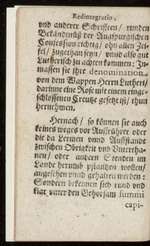 Redintegratio,
und anderer Schrifften / runden
Bekändenüß der Augspurgischen
Confession richtig / ohn allen Zei-
fel / zugethan seyn / vnnd also gut
Lutherisch zu achten kommen: In-
massen sie ihre denomination
von dem Wappen Herrn Lutheri /
darinne eine Rose wie einem einge-
schlossenem Creutze gesetzt ist / thun
hernehmen.
Hernach / so können sie auch
keines weges vor Auffrührer oder
die da Lermen vnnd Auffstand
zwischen Obrigkeit vnd Unterthа-
nen / oder andern Stenden im
Lande herumb pflantzen wolten /
angesehen vnnd gehalten werden:
Sondern bekennen sich rund vnd
klar vnter den Gehorsam summi
capi-